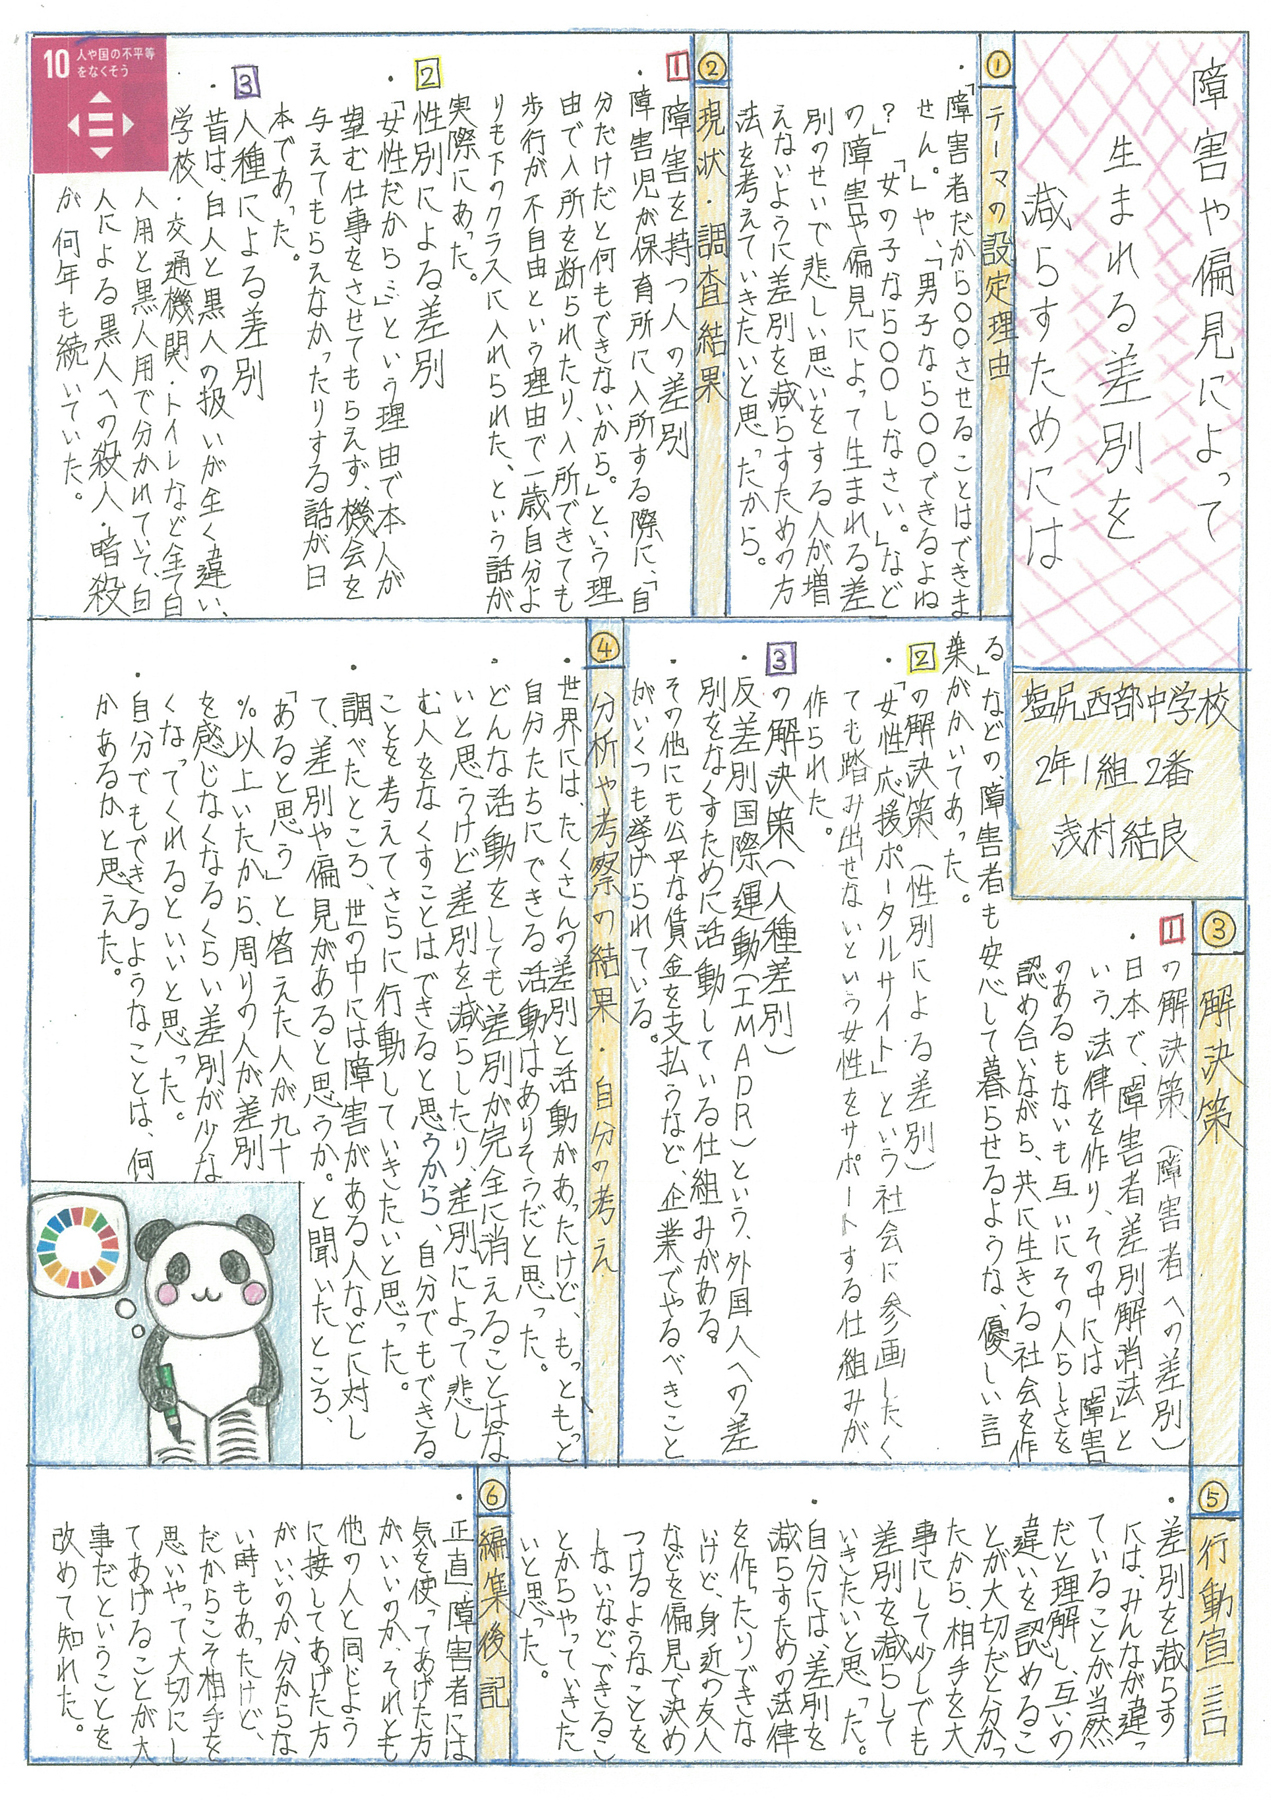 障害や偏見によって
生まれる差別を
減らすためには
塩尻西部中学校
2年1組2番
浅村結良
① テーマの設定理由
・「障害者だから○○させることはできま
せん。」や、「男子なら○○できるよね
？」「女の子なら○○しなさい。」など
の障害や偏見によって生まれる差
別のせいで悲しい思いをする人が増
えないように差別を減らすための方
法を考えていきたいと思ったから。
② 現状・調査結果
1 障害を持つ人の差別
・障害児が保育所に入所する際に、「自
分だけだと何もできないから。」という理
由で入所を断られたり、入所できても
歩行が不自由という理由で一歳自分よ
りも下のクラスに入れられた、という話が
実際にあった。
2 性別による差別
・「女性だから…」という理由で本人が
望む仕事をさせてもらえず、機会を
与えてもらえなかったりする話が日
本であった。
3 人種による差別
・昔は、白人と黒人の扱いが全く違い、
学校・交通機関・トイレなど全て白
人用と黒人用で分かれていて、白
人による黒人への殺人・暗殺
が何年も続いていた。
10 人や国の不平等
をなくそう
③ 解決策
1 の解決策（障害者への差別）
・日本で、「障害者差別解消法」と
いう法律を作り、その中には「障害
のあるもないも互いにその人らしさを
認め合いながら、共に生きる社会を作
る」などの、障害者も安心して暮らせるような、優しい言
葉がかいてあった。
2 の解決策（性別による差別）
・「女性応援ポータルサイト」という社会に参画したく
ても踏み出せないという女性をサポートする仕組みが
作られた。
3 の解決策（人種差別）
・反差別国際運動（IMADR）という、外国人への差
別をなくすために活動している仕組みがある。
・その他にも公平な賃金を支払うなど、企業でやるべきこと
がいくつも挙げられている。
④ 分析や考察の結果・自分の考え
・世界には、たくさんの差別と活動があったけど、もっともっと
自分たちにできる活動はありそうだと思った。
・どんな活動をしても差別が完全に消えることはな
いと思うけど差別を減らしたり、差別によって悲し
む人をなくすことはできると思うから、自分でもできる
ことを考えてさらに行動していきたいと思った。
・調べたところ、世の中には障害がある人などに対し
て、差別や偏見があると思うか。と聞いたところ、
「あると思う」と答えた人が九十
%以上いたから、周りの人が差別
を感じなくなるくらい差別が少な
くなってくれるといいと思った。
・自分でもできるようなことは、何
かあるかと思えた。
⑤ 行動宣言
・差別を減らす
には、みんなが違っ
ていることが当然
だと理解し、互いの
違いを認めるこ
とが大切だと分かっ
たから、相手を大
事にして少しでも
差別を減らして
いきたいと思った。
・自分には、差別を
減らすための法律
を作ったりできな
いけど、身近の友人
などを偏見で決め
つけるようなことを
しないなど、できるこ
とからやっていきた
いと思った。
⑥ 編集後記
・正直、障害者には
気を使ってあげた方
がいいのか、それとも
他の人と同じよう
に接してあげた方
がいいのか、分からな
い時もあったけど、
だからこそ相手を
思いやって大切にし
てあげることが大
事だということを
改めて知れた。